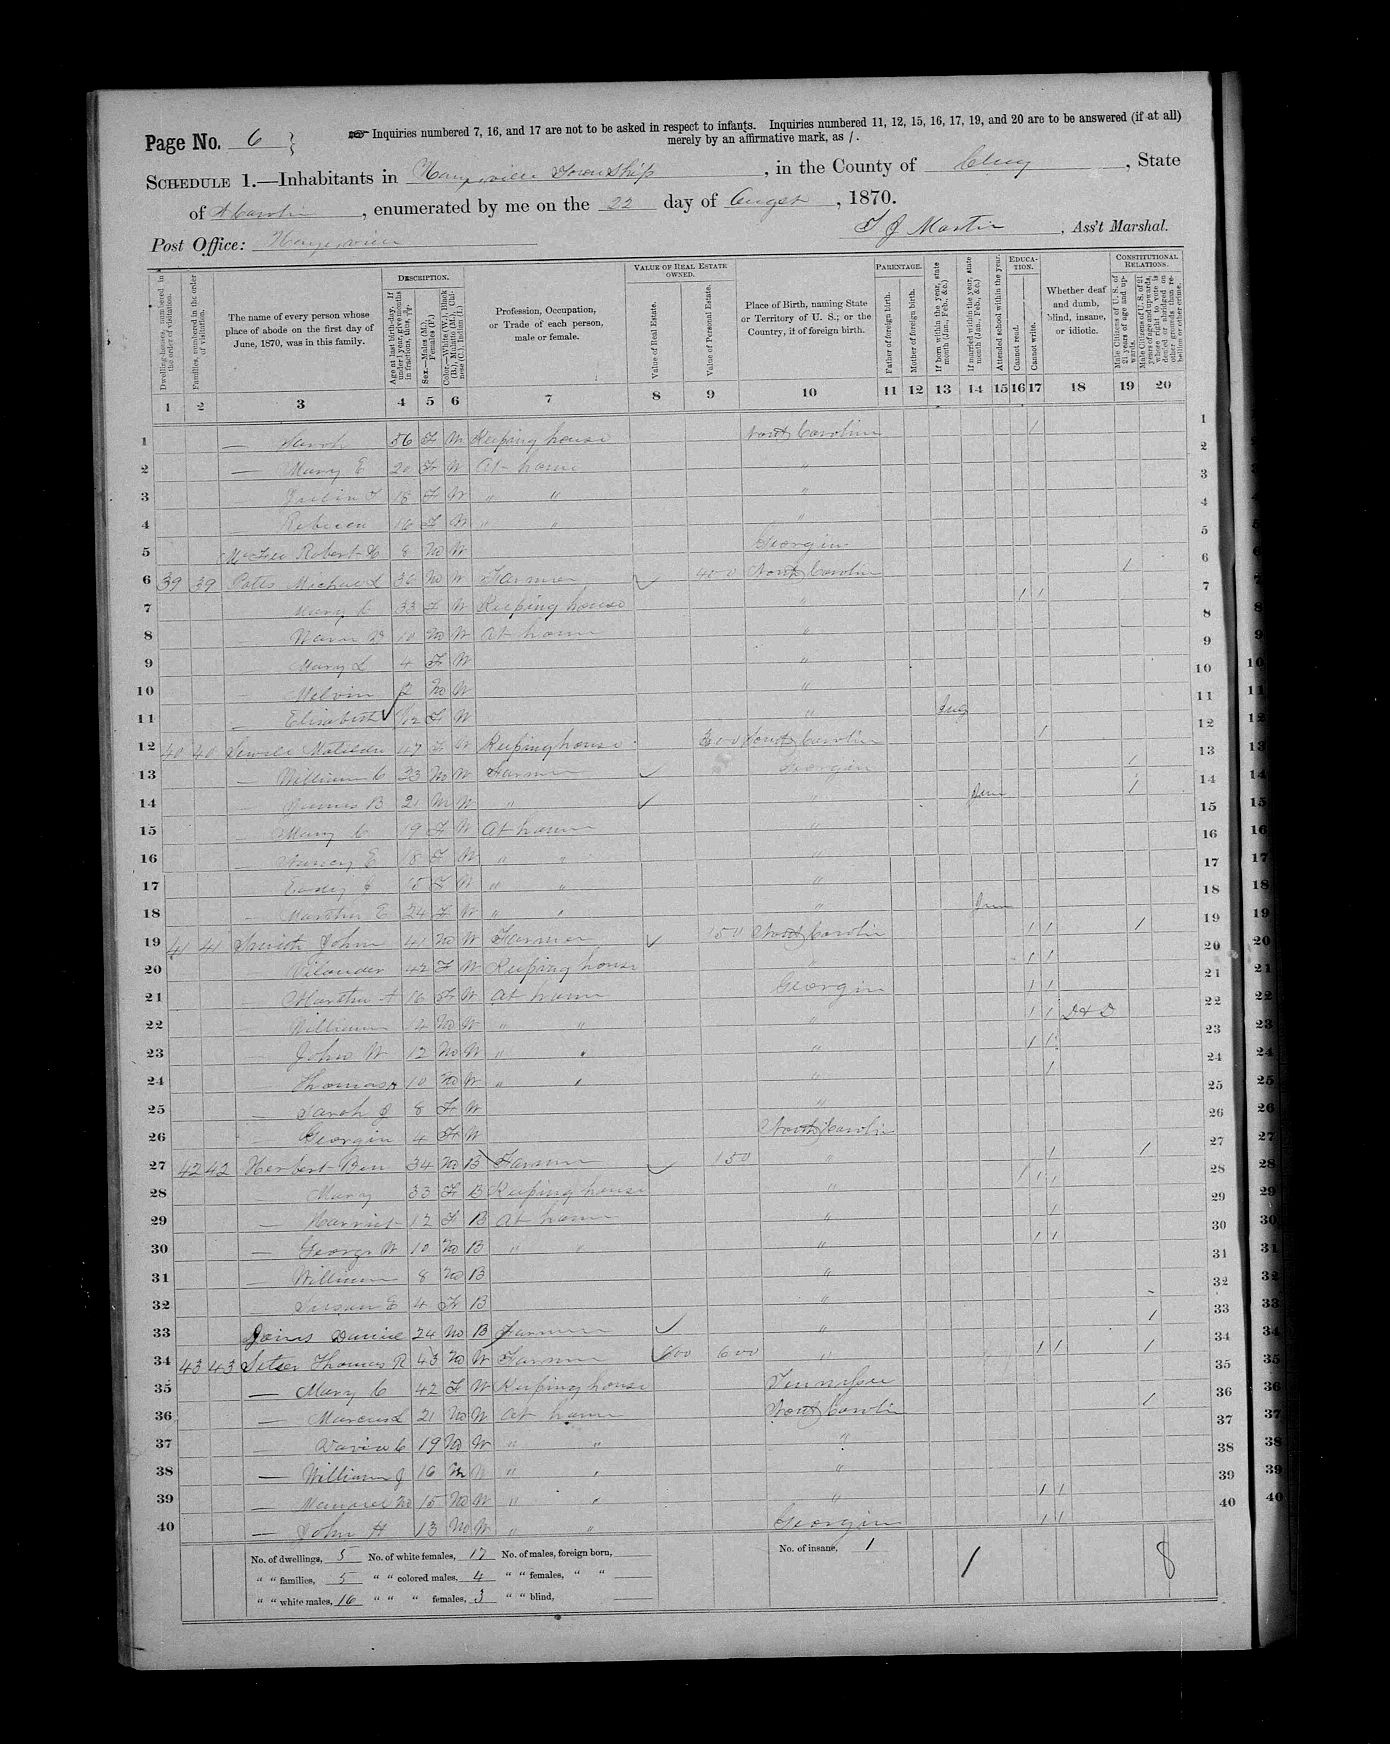 Page No. 6 }
Inquiries numbered 7, 16, and 17 are not to be asked in respect to infants. Inquiries numbered 11, 12, 15, 16, 17, 19, and 20 are to be answered (if at all)
merely by an affirmative mark, as /.
SCHEDULE 1.—Inhabitants in Township, in the County of Clay, State
of N Carolin, enumerated by me on the 22 day of, 1870.
Post Office:
T J Martin, Ass't Marshal.
Dwelling-houses, numbered in the order of visitation.
Families, numbered in the order of visitation.
The name of every person whose place of abode on the first day of June, 1870, was in this family.
DESCRIPTION.
Age at last birth-day. If under 1 year, give months in fractions, thus,
Sex.—Males (M.), Females (F.)
Color.—White (W.), Black (B.), Mulatto (M.), Chinese (C.), Indian (I.)
Profession, Occupation, or Trade of each person, male or female.
VALUE OF REAL ESTATE OWNED.
Value of Real Estate.
Value of Personal Estate.
Place of Birth, naming State or Territory of U. S.; or the Country, if of foreign birth.
PARENTAGE.
Father of foreign birth.
Mother of foreign birth.
If born within the year, state month (Jan., Feb., &c.)
If married within the year, state month (Jan., Feb., &c.)
Attended school within the year.
EDUCATION.
Cannot read.
Cannot write.
Whether deaf and dumb, blind, insane, or idiotic.
CONSTITUTIONAL RELATIONS.
Male Citizens of U. S. of 21 years of age and upwards.
Male Citizens of U. S. of 21 years of age and upwards, whose right to vote is denied or abridged on other grounds than rebellion or other crime.
1 2 3 4 5 6 7 8 9 10 11 12 13 14 15 16 17 18 19 20
1 — Sarah 56 F W Keeping house North Carolina / 1
2 — Mary E 20 F W At home " 2
3 — 18 F W " " " 3
4 — 16 F W " " " 4
5 McFee Robert 8 M W Georgia 5
6 39 39 36 M W Farmer 400 North Carolin / 6
7 — Mary C 33 F W Keeping house " / / 7
8 — 10 M W At home " 8
9 — Mary L 4 F W " 9
10 — Melvin 2 M W " 10
11 — Elizabeth /12 F W " July 11
12 40 40 Matilda 47 F W Keeping house Carolin / 12
13 — William C 23 M W Farmer Georgia / 13
14 — James B 21 M W " " / 14
15 — Mary C 19 F W At home " 15
16 — Nancy E 18 F W " " " 16
17 — 15 F W " " " 17
18 — Martha E 24 F W " " " 18
19 41 41 John 41 M W Farmer 150 North Carolin / / / 19
20 42 F W Keeping house " / / 20
21 — Martha A 16 F W At home Georgia / / 21
22 — William M W " " " / / D & D 22
23 — John W 12 M W " " " / / 23
24 — Thomas 10 M W " " " / 24
25 — Sarah J 8 F W " 25
26 — Georgia 4 F W North Carolin 26
27 42 42 Herbert Ben 34 M B Farmer 150 " / / 27
28 — Mary 33 F B Keeping house " / / 28
29 — Harriet 12 F B At home " / 29
30 — George W 10 M B " " " / / 30
31 — William 8 M B " 31
32 — Susan E 4 F B " 32
33 24 M B Farmer " / 33
34 43 43 Setser Thomas R 43 M W Farmer 600 " / / / 34
35 — Mary C 42 F W Keeping house Tennessee 35
36 — Marcus L 21 M W At home North Carolin / 36
37 — David C 19 M W " " " 37
38 — William J 16 M W " " " 38
39 — 15 M W " " " / / 39
40 — John H 13 M W " " Georgia / / 40
No. of dwellings, 5 No. of white females, 17 No. of males, foreign born, No. of insane, 1 1 8
" " families, 5 " " colored males, 4 " " females, " "
" " white males, 16 " " " females, 3 " " blind,